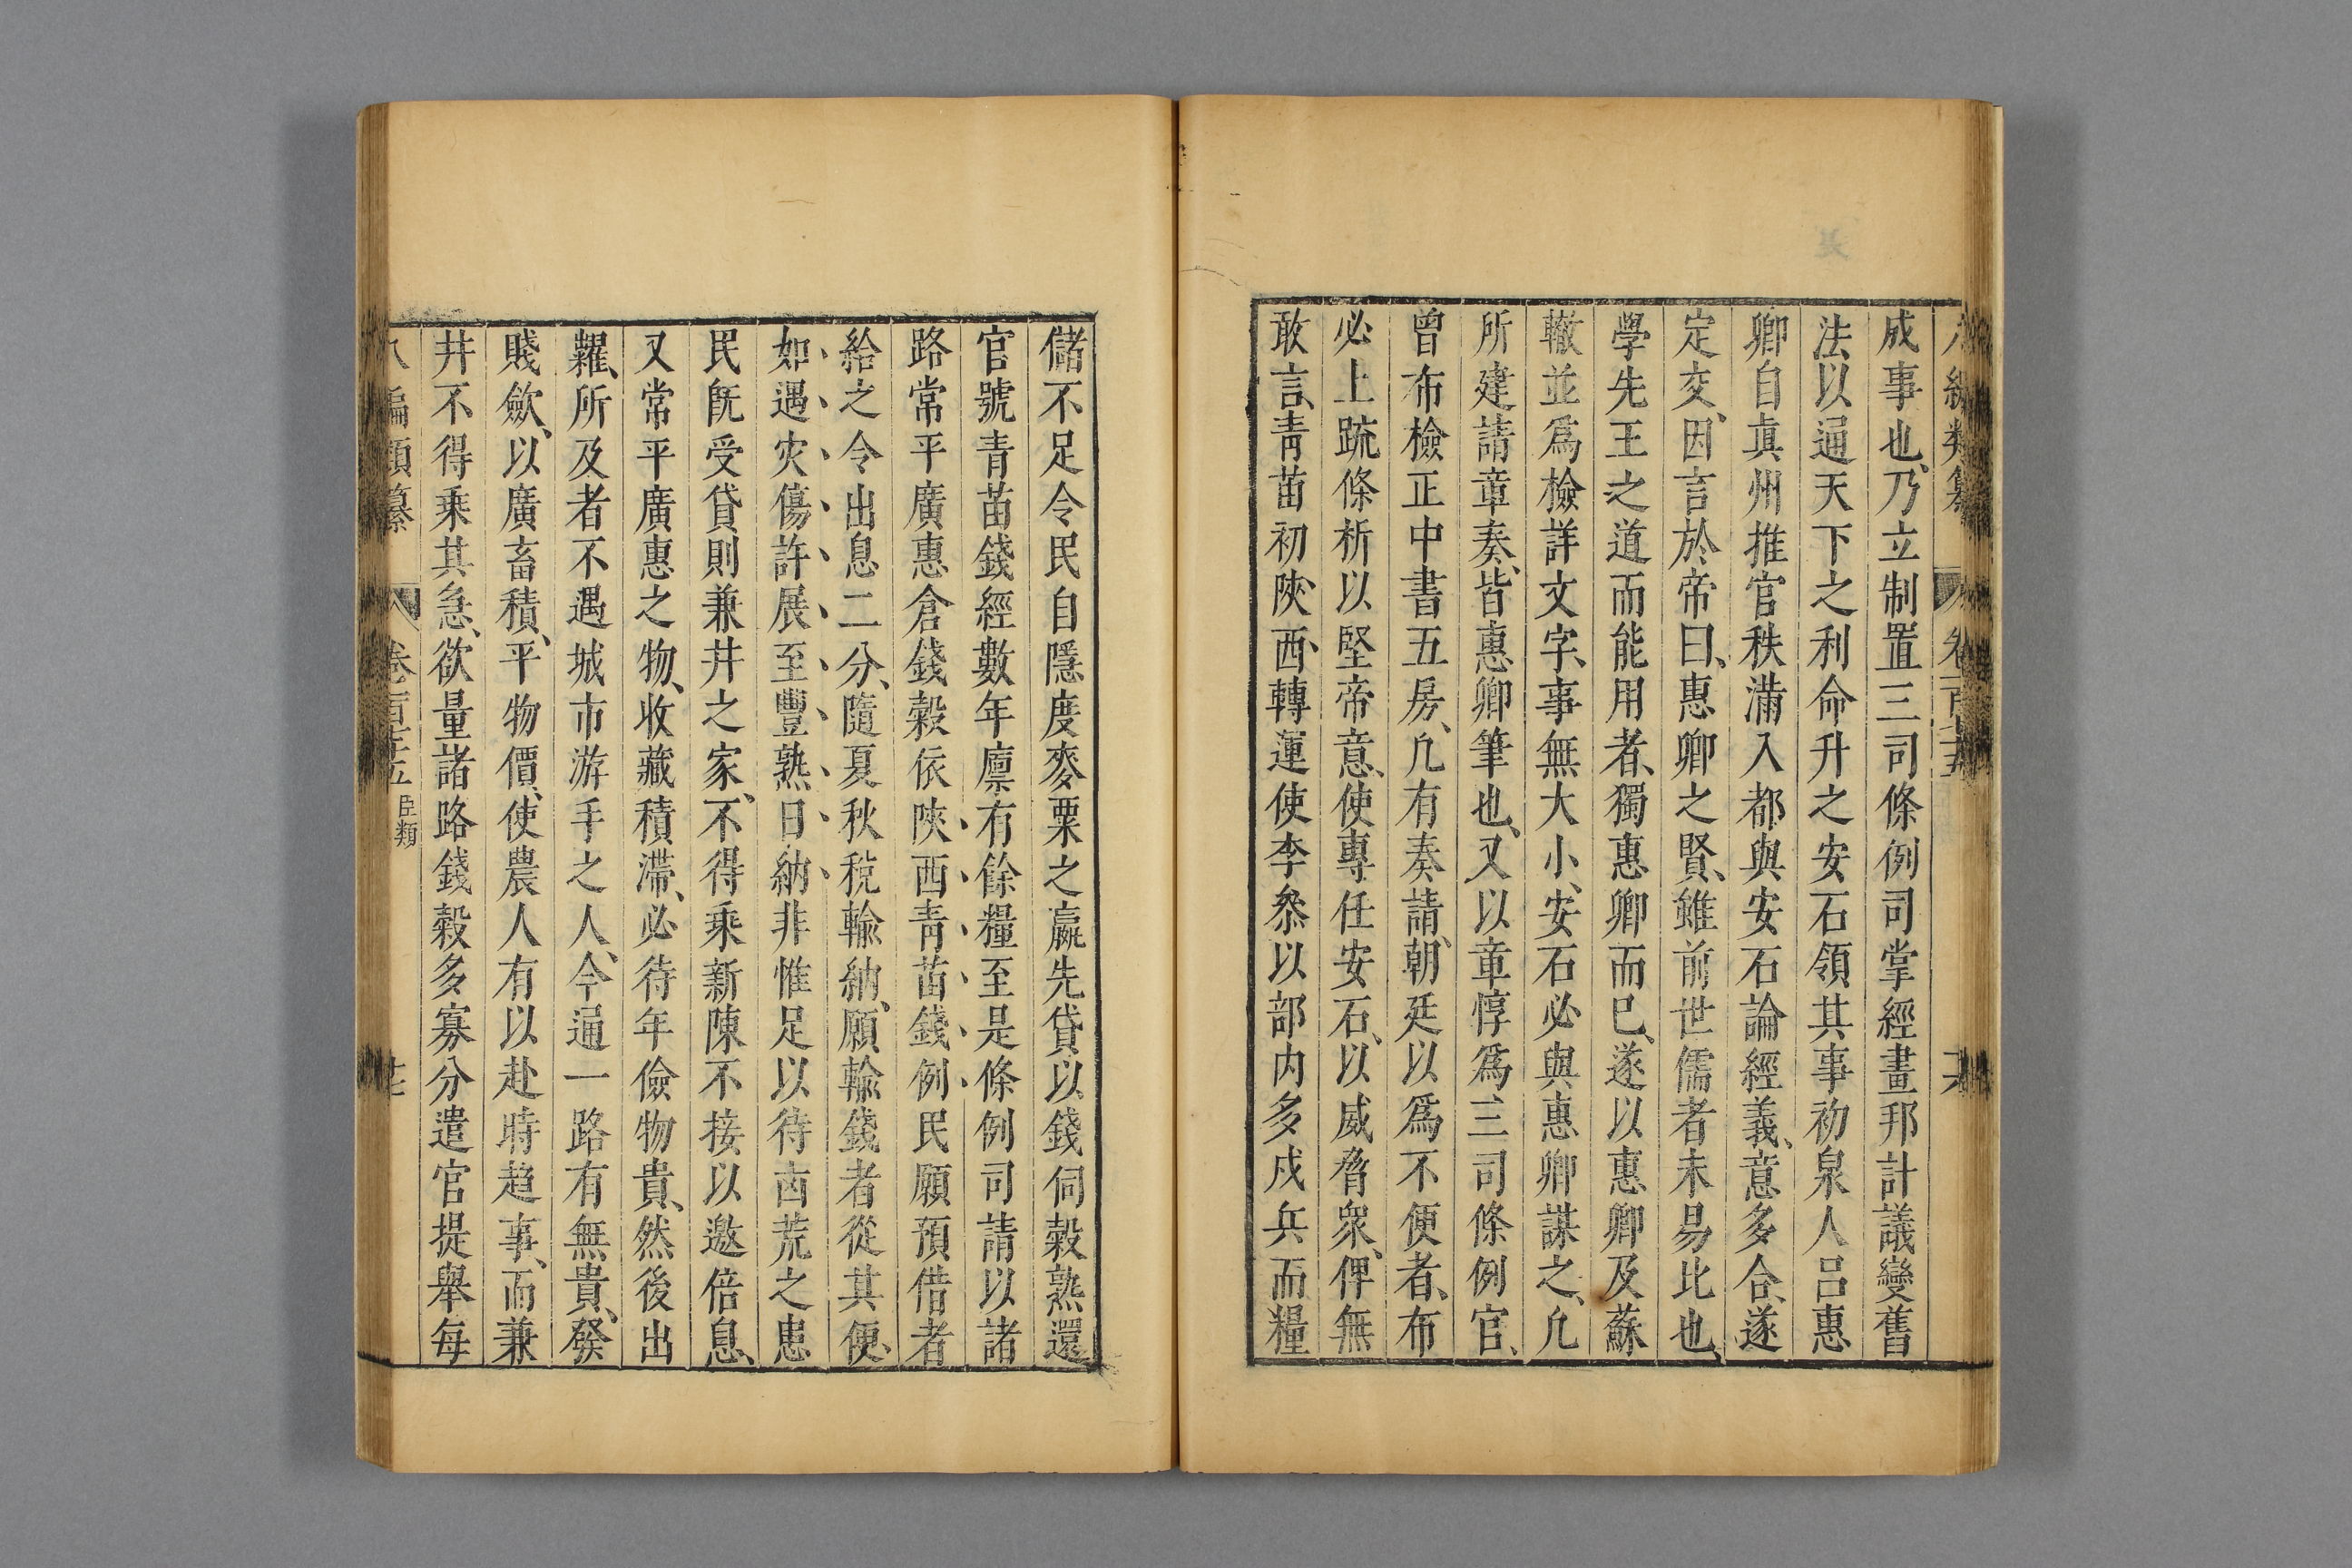 八編類纂 卷一百七十五 十六
成事也、乃立制置三司條例司掌經畫邦計議變舊
法以通天下之利命升之安石領其事初泉人呂惠
卿自真州推官秩滿入都與安石論經義、意多合、遂
定交、因言於帝曰、惠卿之賢、雖前世儒者未易比也、
學先王之道而能用者、獨惠卿而已、遂以惠卿及蘇
轍並爲檢詳文字、事無大小、安石必與惠卿謀之、凡
所建請章奏、皆惠卿筆也、又以章惇爲三司條例官、
曾布檢正中書五房、凡有奏請、朝廷以爲不便者、布
必上䟽條析以堅帝意、使專任安石、以威脅衆、俾無
敢言、青苗初陝西轉運使李叅以部内多戍兵而糧
儲不足令民自隱度麥粟之贏先貸以錢伺穀熟還
官號青苗錢經數年廩有餘糧至是條例司請以諸
路常平廣惠倉錢穀依陝西青苗錢例民願預借者
給之令出息二分、隨夏秋稅輸納、願輸錢者從其便、
如遇灾傷許展至豐熟日納非惟足以待凶荒之患
民旣受貸則兼并之家、不得乘新陳不接以邀倍息、
又常平廣惠之物、收藏積滯、必待年儉物貴、然後出
糶、所及者不遇城市游手之人、今通一路有無貴、發
賤歛、以廣畜積、平物價、使農人有以赴時趋事、而兼
并不得乘其急、欲量諸路錢穀多寡分遣官提舉每
八編類纂 卷一百七十五 臣類